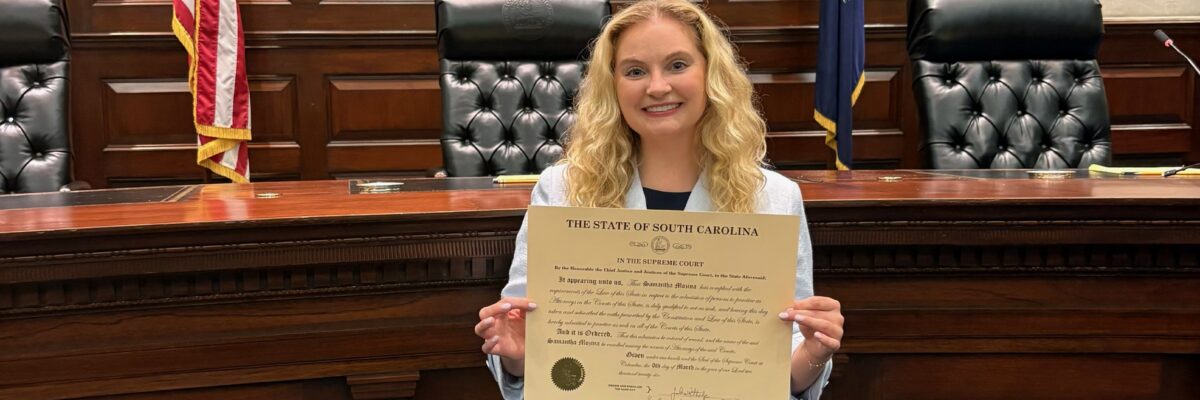 THE STATE OF SOUTH CAROLINA
IN THE SUPREME COURT
By the Honorable the Chief Justice and Justices of the Supreme Court, in the State Aforesaid:
It appearing unto us, That Samantha Mozina has complied with the
requirements of the Law of this State in respect to the admission of persons to practice as
Attorneys in the Courts of this State, is duly qualified to act as such, and having this day
taken and subscribed the oaths prescribed by the Constitution and Law of this State, is
hereby admitted to practice as such in all of the Courts of this State.
And it is Ordered, That this admission be entered of record, and the name of the said
Samantha Mozina be enrolled among the names of Attorneys of the said Courts.
Given under our hands and the Seal of the Supreme Court at
Columbia, the 9th day of March in the year of our Lord two
thousand twenty-six.